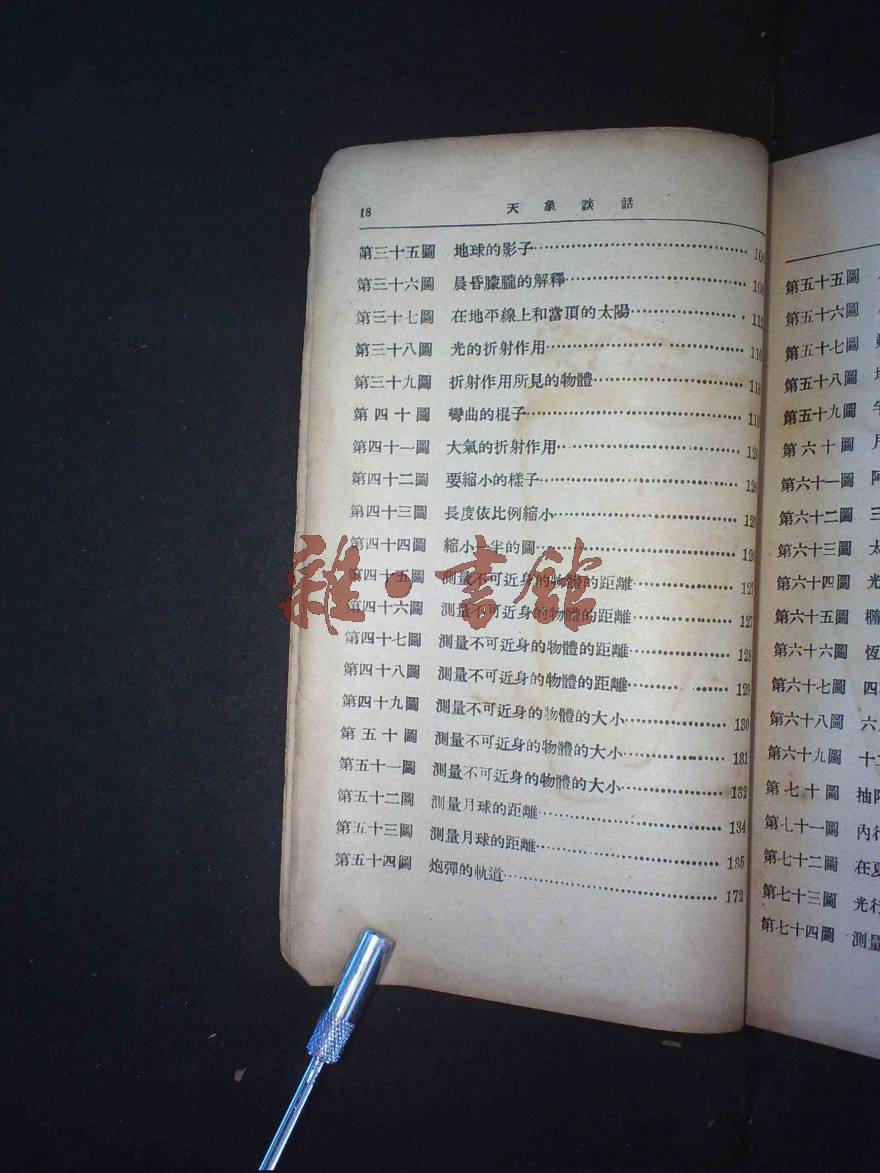 18 天象談話
第三十五圖 地球的影子
第三十六圖 晨昏朦朧的解釋
第三十七圖 在地平線上和當頂的太陽
第三十八圖 光的折射作用 116
第三十九圖 折射作用所見的物體 118
第四十圖 彎曲的棍子
第四十一圖 大氣的折射作用
第四十二圖 要縮小的樣子
第四十三圖 長度依比例縮小
第四十四圖 縮小一半的圖 126
第四十五圖 測量不可近身的物體的距離 127
第四十六圖 測量不可近身的物體的距離 127
第四十七圖 測量不可近身的物體的距離 128
第四十八圖 測量不可近身的物體的距離 129
第四十九圖 測量不可近身的物體的大小 130
第五十圖 測量不可近身的物體的大小 131
第五十一圖 測量不可近身的物體的大小 132
第五十二圖 測量月球的距離 134
第五十三圖 測量月球的距離 135
第五十四圖 炮彈的軌道 172
雜·書館
第五十五圖
第五十六圖
第五十七圖
第五十八圖
第五十九圖
第六十圖
第六十一圖 阿
第六十二圖 三
第六十三圖 太
第六十四圖 光
第六十五圖 橢
第六十六圖 恆
第六十七圖 四
第六十八圖 六
第六十九圖 十二
第七十圖
第七十一圖 內行
第七十二圖 在夏
第七十三圖 光行
第七十四圖 測量